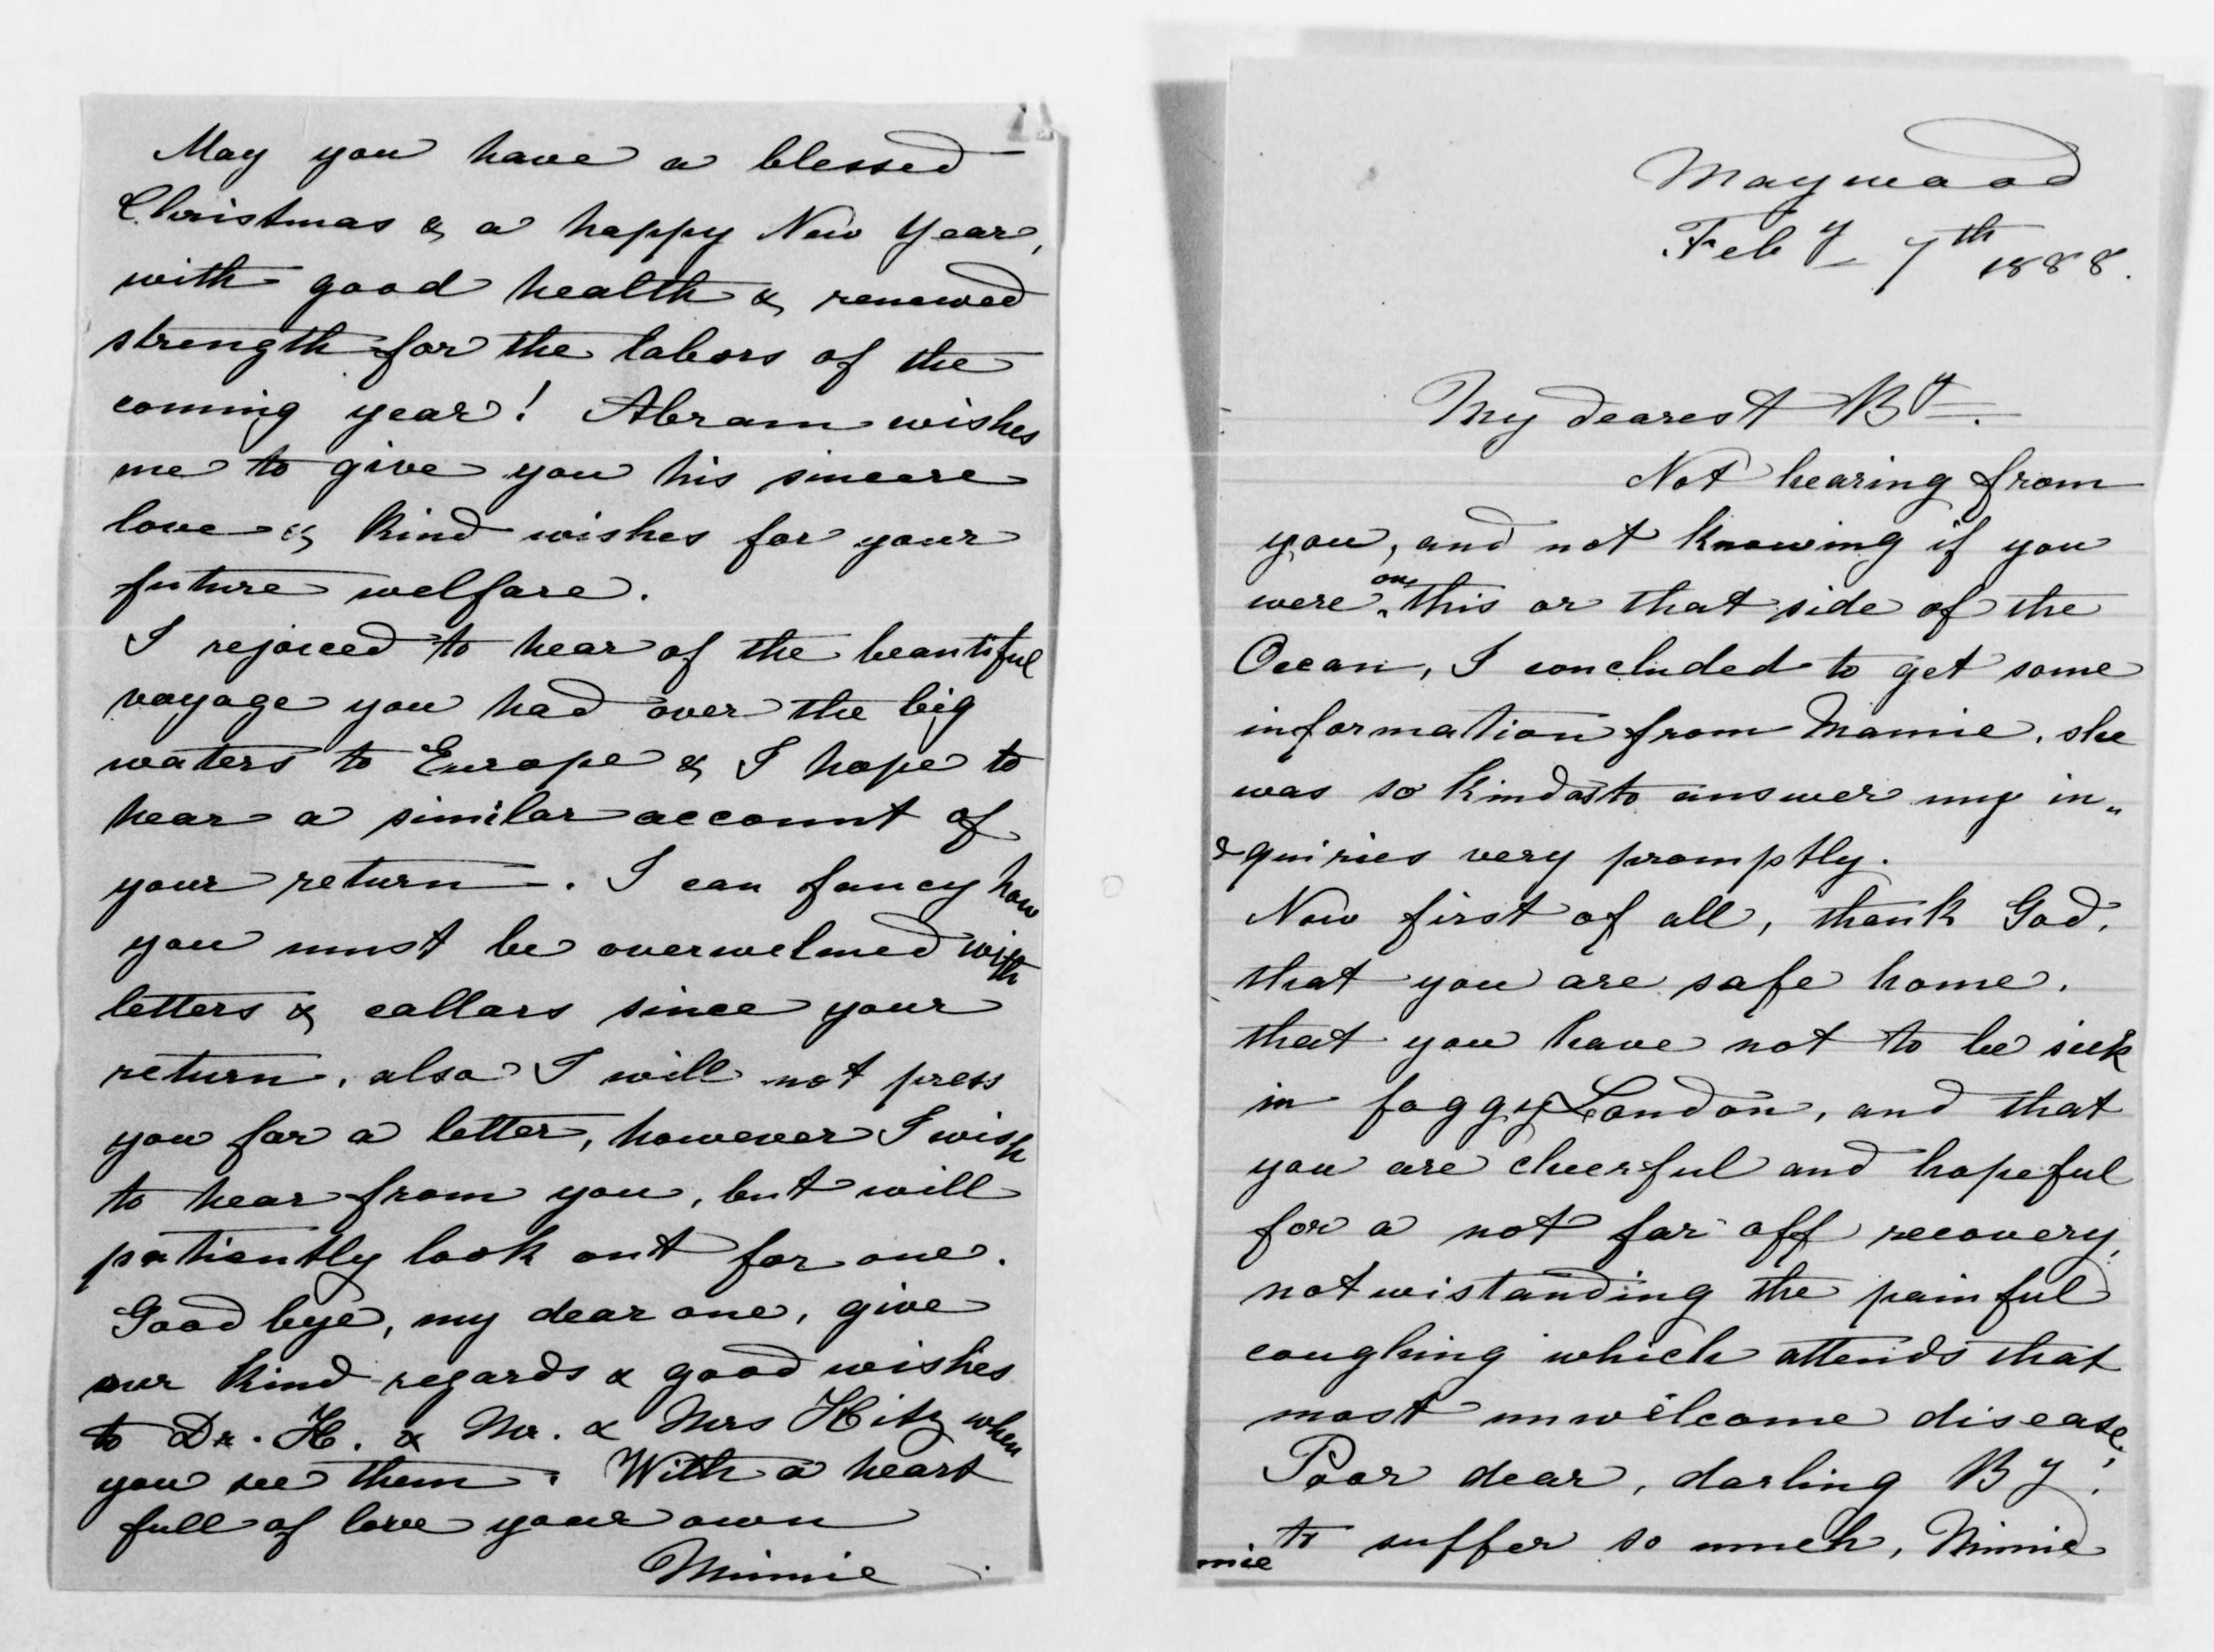 May you have a blessed
Christmas & a happy New Year,
with good health & renewed
strength for the labors of the
coming year! Abram wishes
me to give you his sincere
love & kind wishes for your
future welfare.
I rejoiced to hear of the beautiful
voyage you had over the big
waters to Europe & I hope to
hear a similar account of
your return. I can fancy how
you must be overwelmed with
letters & callars since your
return, also I will not press
you for a letter, however I wish
to hear from you, but will
patiently look out for one.
Good bye, my dear one, give
our kind regards & good wishes
to Dr. H. & Mr. & Mrs Hitz when
you see them. With a heart
full of love your own
Minnie
Maywood
Feby 7th 1888.
My dearest By.
Not hearing from
you, and not knowing if you
were on this or that side of the
Ocean, I concluded to get some
information from Mamie, she
was so kind as to answer my in„
quiries very promptly.
Now first of all, thank God,
that you are safe home,
that you have not to be sick
in foggy London, and that
you are cheerful and hopeful
for a not far off recovery,
notwistanding the painful
coughing which attends that
most unwelcome disease,
Poor dear, darling By,
to suffer so much, Minnie
mie